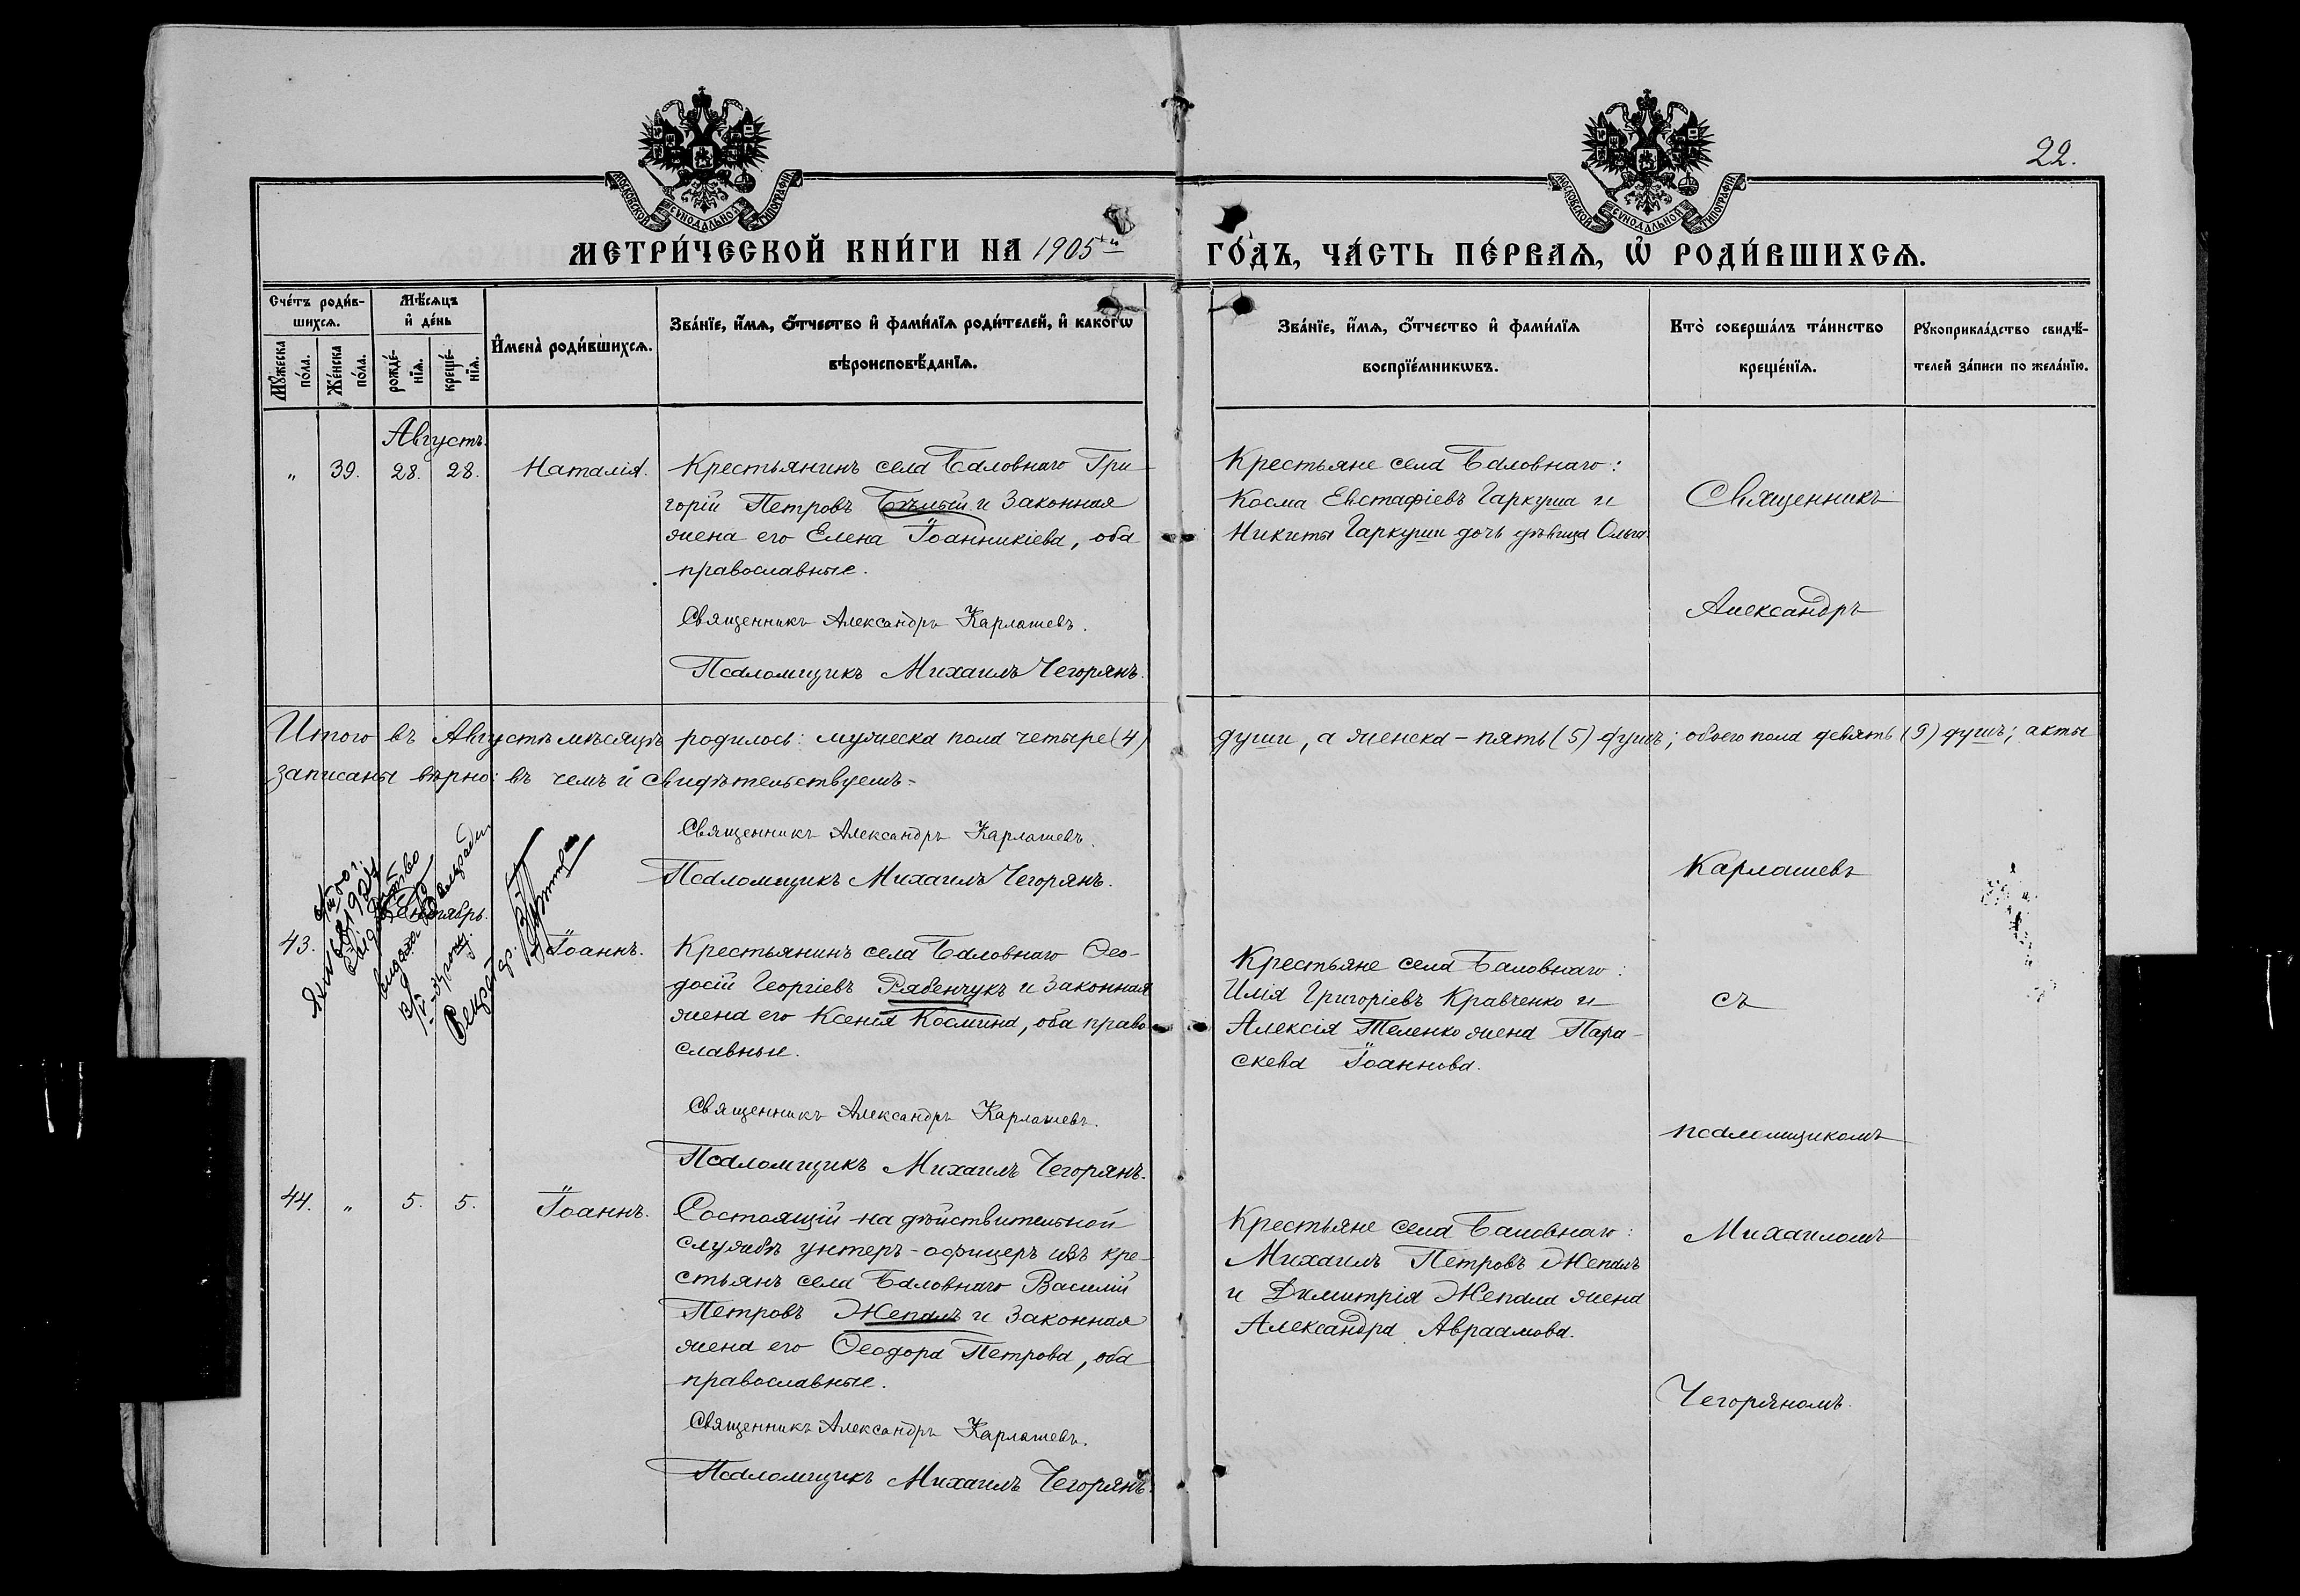 22.
МОСКОВСКОЙ СѴНОДАЛЬНОЙ ТИПОГРАФІИ
МОСКОВСКОЙ СѴНОДАЛЬНОЙ ТИПОГРАФІИ
МЕТРИ́ЧЕСКОЙ КНИ́ГИ НА 1905й
ГО́ДЪ, ЧА́СТЬ ПЕ́РВАѦ, Ѡ҆ РОДИ́ВШИХСѦ.
Сче́тъ роди́в-
шихсѧ.
Мꙋ́жеска по́ла.
Же́нска по́ла.
Мѣ́сѧцъ
и҆ де́нь
рожде́-
нїѧ.
креще́-
нїѧ.
И҆мена̀ роди́вшихсѧ.
Зва́нїе, и҆́мѧ, ѻ҆́тчество и҆ фами́лїѧ роди́телей, и҆ како́гѡ
вѣроисповѣ́данїѧ.
Зва́нїе, и҆́мѧ, ѻ҆́тчество и҆ фами́лїѧ
воспрїе́мникѡвъ.
Кто̀ соверша́лъ та́инство
креще́нїѧ.
Рꙋкоприкла́дство свидѣ́-
телей за́писи по жела́нїю.
Августъ.
„ 39. 28. 28. Наталія. Крестьянинъ села Баловнаго Гри-
горій Петровъ Бѣлый и законная
жена его Елена Іоанникіева, оба
православные.
Священникъ Александръ Карлашевъ.
Псаломщикъ Михаилъ Чегорянъ.
Крестьяне села Баловнаго:
Косма Евстафіевъ Гаркуша и
Никиты Гаркуши дочь дѣвица Ольга.
Священникъ
Александръ
Итого въ Августѣ мѣсяцѣ родилось: мужеска пола четыре (4) души, а женска - пять (5) душъ; обоего пола девять (9) душъ; акты
записаны вѣрно: въ чемъ и свидѣтельствуемъ.
Священникъ Александръ Карлашевъ.
Псаломщикъ Михаилъ Чегорянъ.
Карлашевъ
Сентябрь.
43. Іоаннъ. Крестьянинъ села Баловнаго Ѳео-
досій Георгіевъ Рябенчукъ и законная
жена его Ксенія Космина, оба право-
славные.
Священникъ Александръ Карлашевъ.
Псаломщикъ Михаилъ Чегорянъ.
Крестьяне села Баловнаго:
Илія Григоріевъ Кравченко и
Алексія Теленко жена Пара-
скева Іоаннова.
съ
псаломщикомъ
44. „ 5. 5. Іоаннъ. Состоящій на дѣйствительной
службѣ унтеръ-офицеръ изъ кре-
стьянъ села Баловнаго Василій
Петровъ Жепалъ и законная
жена его Ѳеодора Петрова, оба
православные.
Священникъ Александръ Карлашевъ.
Псаломщикъ Михаилъ Чегорянъ.
Крестьяне села Баловнаго:
Михаилъ Петровъ Жепалъ
и Димитрія Жепала жена
Александра Авраамова.
Михаиломъ
Чегоряномъ.